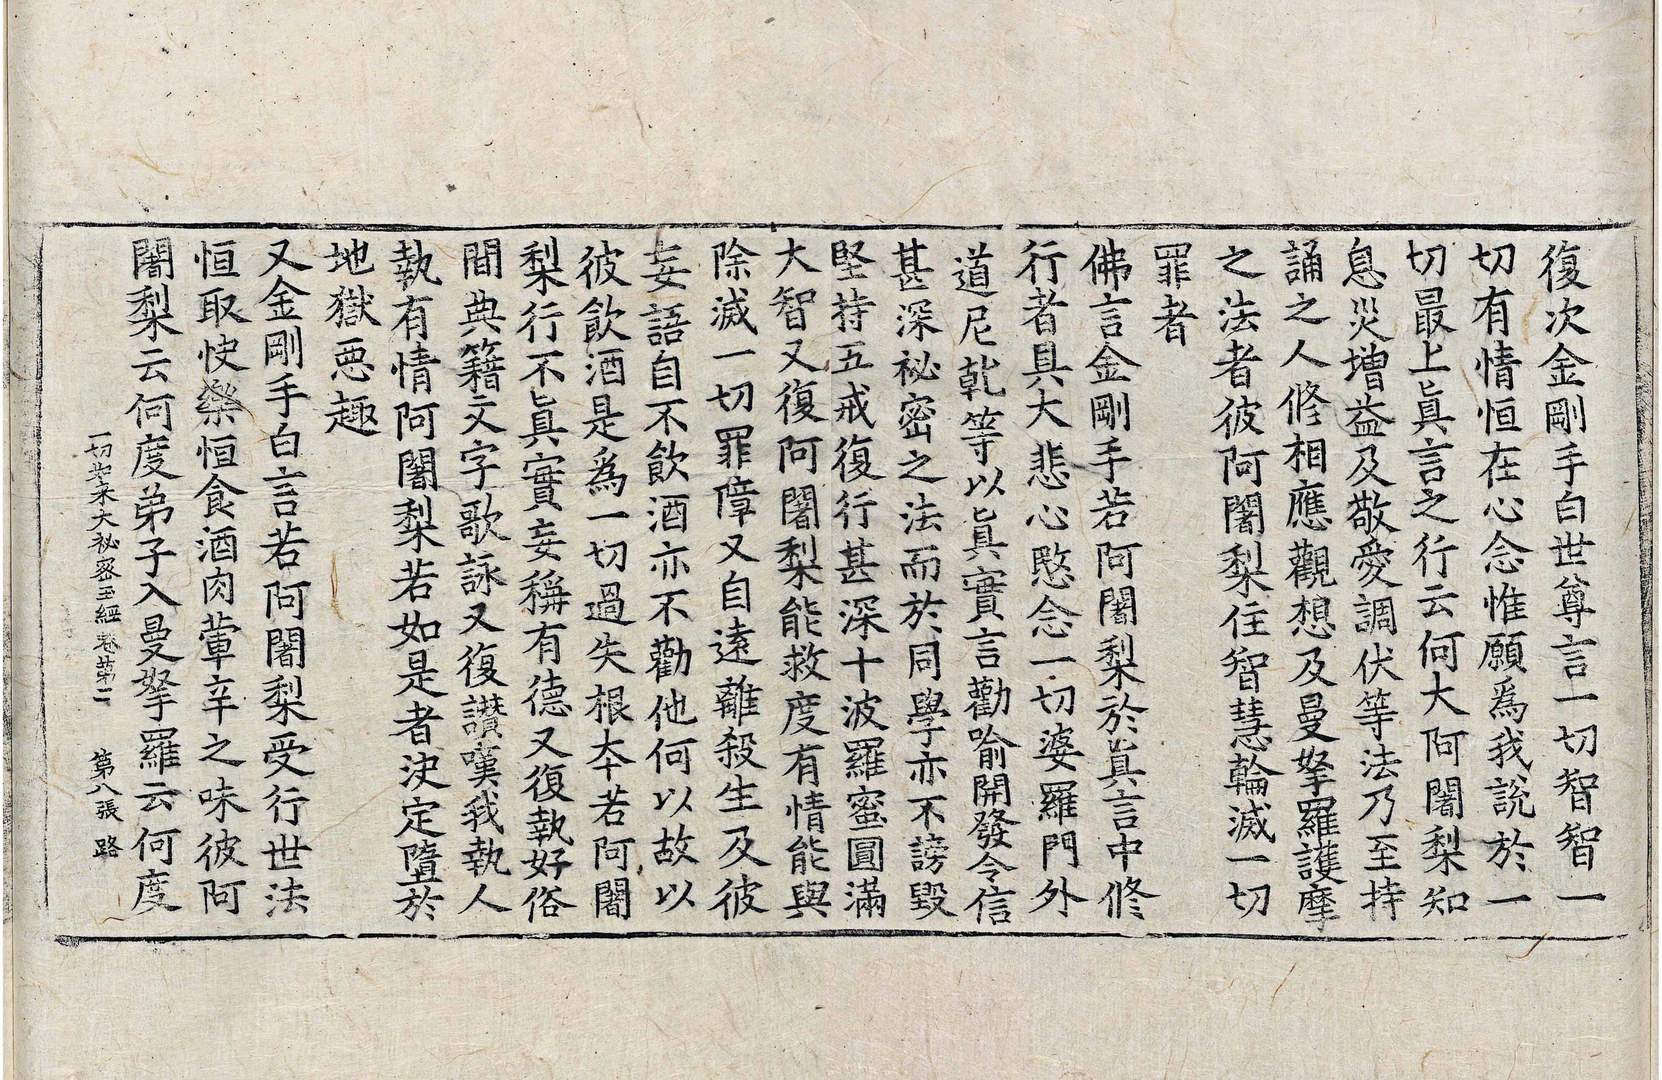 復次金剛手白世尊言一切智智一
切有情恒在心念惟願爲我說於一
切最上眞言之行云何大阿闍梨知
息災增益及敬愛調伏等法乃至持
誦之人修相應觀想及曼拏羅護摩
之法者彼阿闍梨住智慧輪滅一切
罪者
佛言金剛手若阿闍梨於眞言中修
行者具大悲心愍念一切婆羅門外
道尼乾等以眞實言勸喻開發令信
甚深祕密之法而於同學亦不謗毀
堅持五戒復行甚深十波羅蜜圓滿
大智又復阿闍梨能救度有情能與
除滅一切罪障又自遠離殺生及彼
妄語自不飮酒亦不勸他何以故以
彼飮酒是爲一切過失根夲若阿闍
梨行不眞實妄稱有德又復執好俗
閒典籍文字歌詠又復讃嘆我執人
執有情阿闍梨若如是者決定墮於
地獄惡趣
又金剛手白言若阿闍梨受行世法
恒取快樂恒食酒肉葷辛之味彼阿
闍梨云何度弟子入曼拏羅云何度
一切如来大祕密王經卷第二 第八張 路